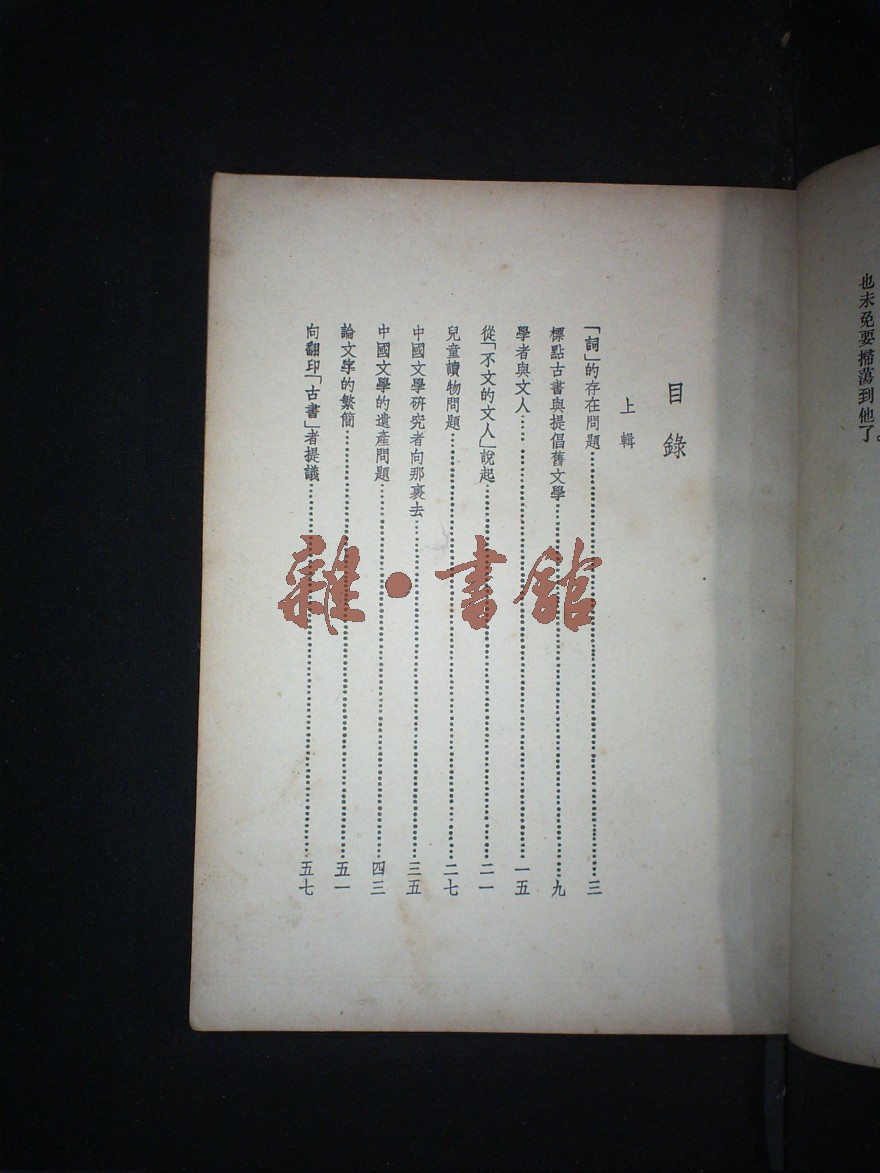 也未免要掃蕩到他了。
目錄
上輯
「詞」的存在問題……三
標點古書與提倡舊文學……九
學者與文人……一五
從「不文的文人」說起……二一
兒童讀物問題……二七
中國文學研究者向那裏去……三五
中國文學的遺產問題……四三
論文字的繁簡……五一
向翻印「古書」者提議……五七
雜·書館